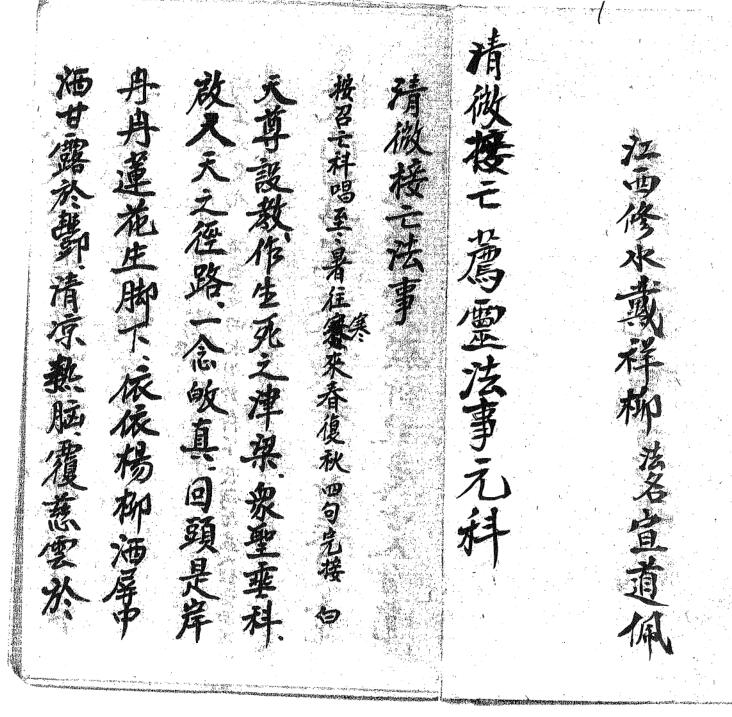 江西修水戴祥柳 法名宣道佩
清微接亡薦靈法事元科
清微接亡法事
按召亡科唱至暑往寒來春復秋四句完接 白
天尊設教、作生死之津梁、眾聖垂科、
啟人天之徑路、一念皈真、回頭是岸
冉冉蓮花生脚下、依依楊柳洒屏中
洒甘露於酆、清凉熱腦、覆慈雲於